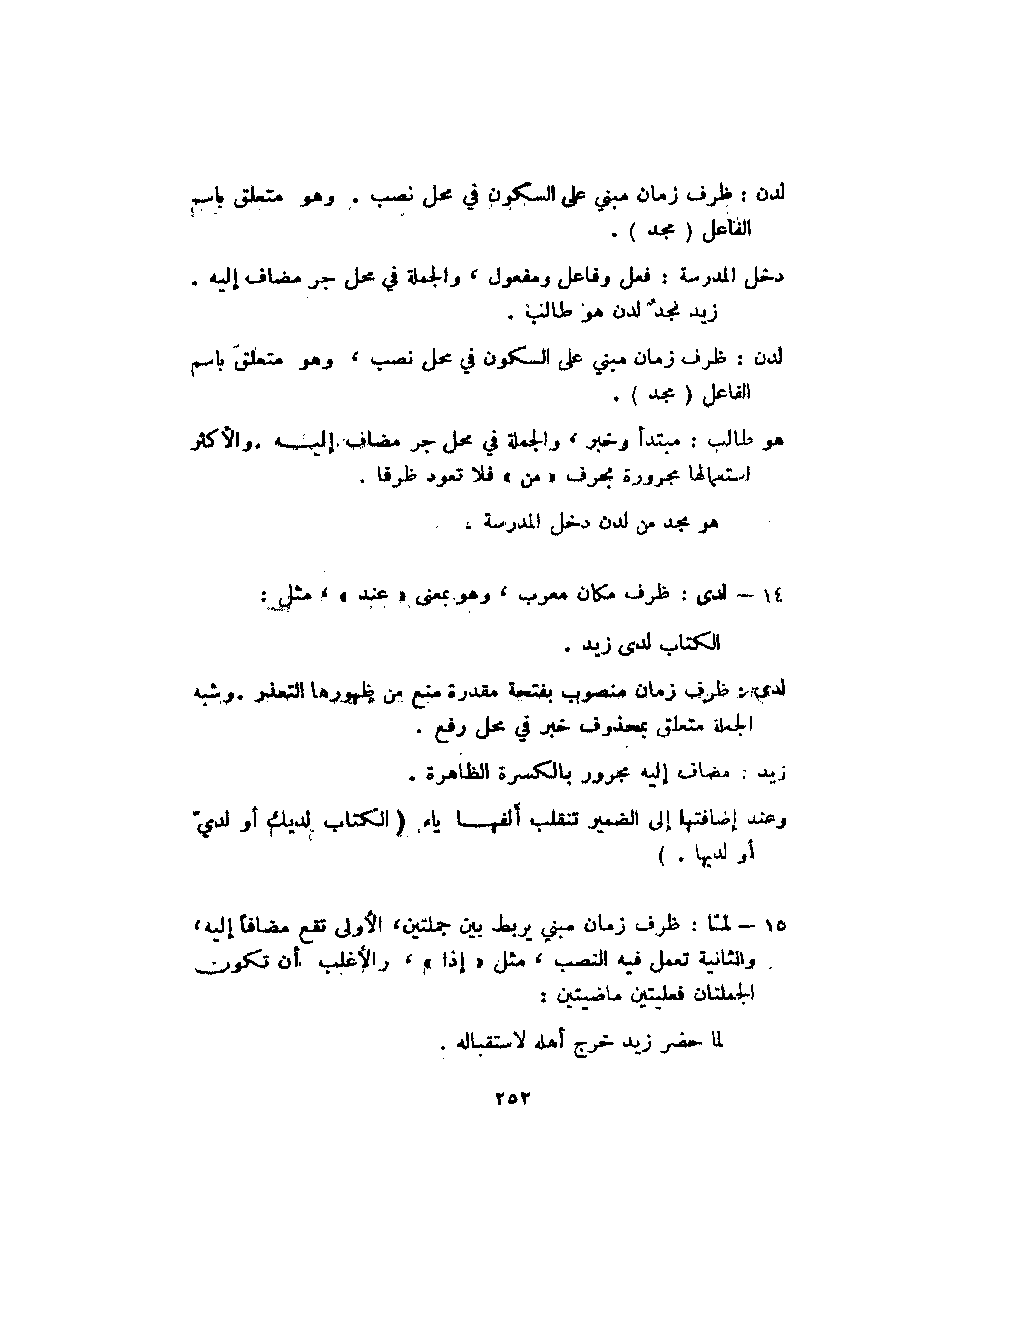 لدن : ظرف زمان مبني على السكون في محل نصب . وهو متعلق باسم
الفاعل ( مجد ) .
دخل المدرسة : فعل وفاعل ومفعول ، والجملة في محل جر مضاف إليه .
زيد مجدٌ لدن هو طالب .
لدن : ظرف زمان مبني على السكون في محل نصب ، وهو متعلق باسم
الفاعل ( مجد ) .
هو طالب : مبتدأ وخبر ، والجملة في محل جر مضاف إليـــه . والأكثر
استعمالها مجرورة بحرف « من » فلا تعود ظرفا .
هو مجد من لدن دخل المدرسة .
١٤ – لدى : ظرف مكان معرب ، وهو بمعنى « عند » ، مثل :
الكتاب لدى زيد .
لدى : ظرف زمان منصوب بفتحة مقدرة منع من ظهورها التعذر . وشبه
الجملة متعلق بمحذوف خبر في محل رفع .
زيد : مضاف إليه مجرور بالكسرة الظاهرة .
وعند إضافتها إلى الضمير تنقلب ألفهـــا ياء ( الكتاب لديك أو لديّ
أو لديها . )
١٥ – لمّا : ظرف زمان مبني يربط بين جملتين، الأولى تقع مضافاً إليه،
والثانية تعمل فيه النصب ، مثل « إذا » ، والأغلب أن تكون
الجملتان فعليتين ماضيتين :
لما حضر زيد خرج أهله لاستقباله .
٢٥٢